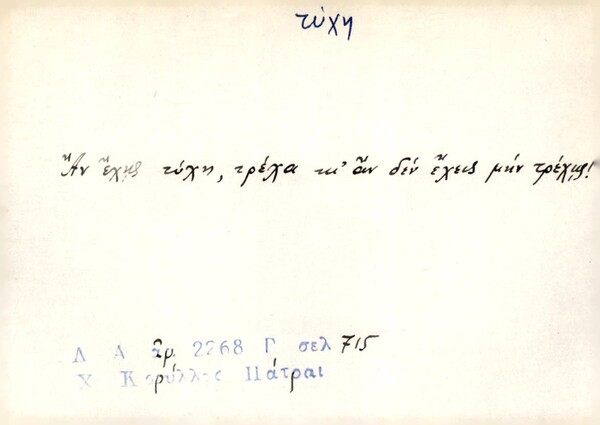 τύχη
Ἂν ἔχῃς τύχη, τρέχα κι' ἂν δὲν ἔχεις μὴν τρέχῃς!
Λ Α ἀρ. 2268 Γ σελ 715
Χ Κορύλλος Πάτραι